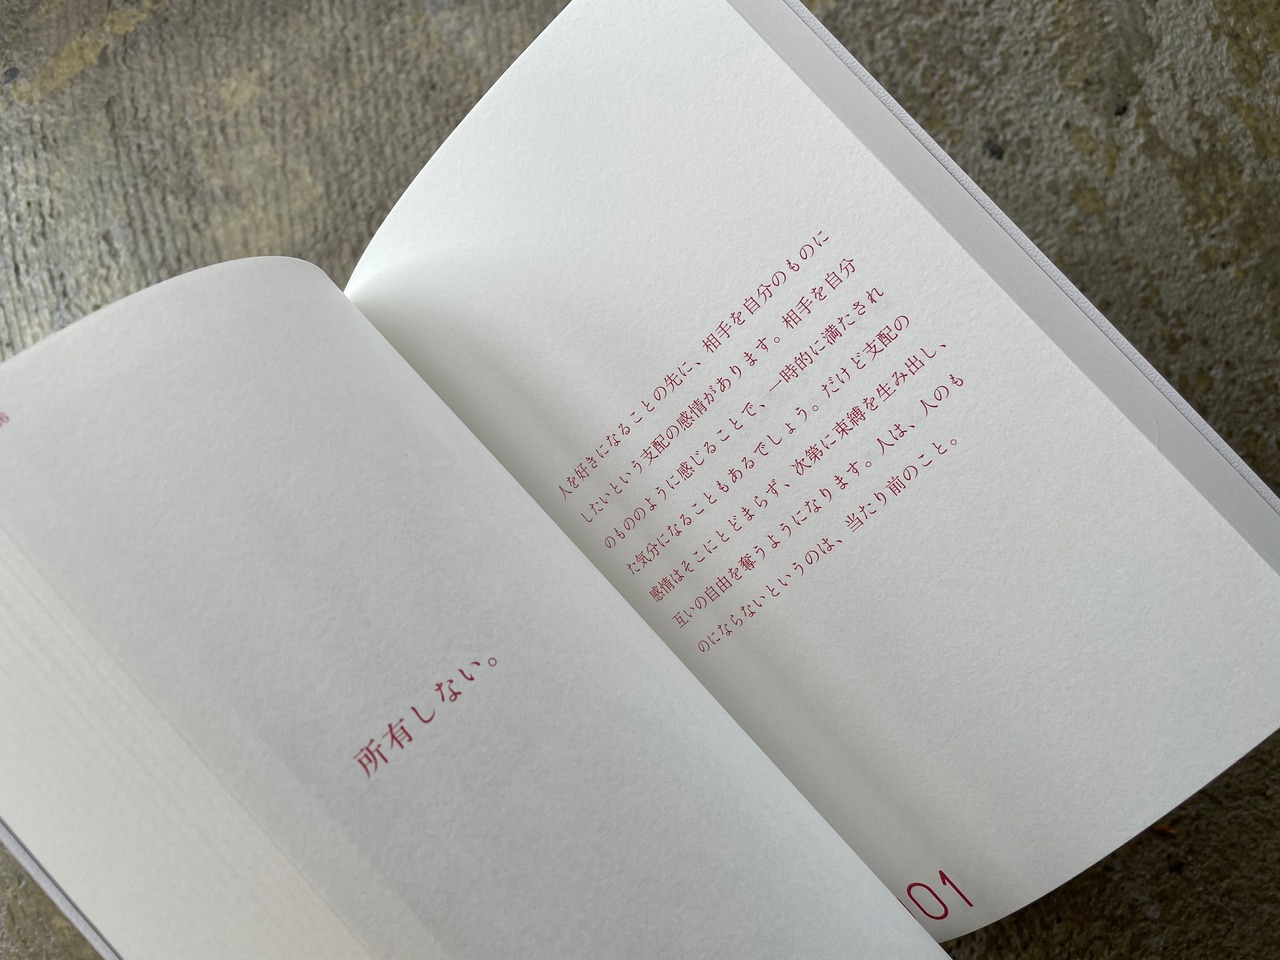 所有しない。
人を好きになることの先に、相手を自分のものに
したいという支配の感情があります。相手を自分
のもののように感じることで、一時的に満たされ
た気分になることもあるでしょう。だけど支配の
感情はそこにとどまらず、次第に束縛を生み出し、
互いの自由を奪うようになります。人は、人のも
のにならないというのは、当たり前のこと。
01